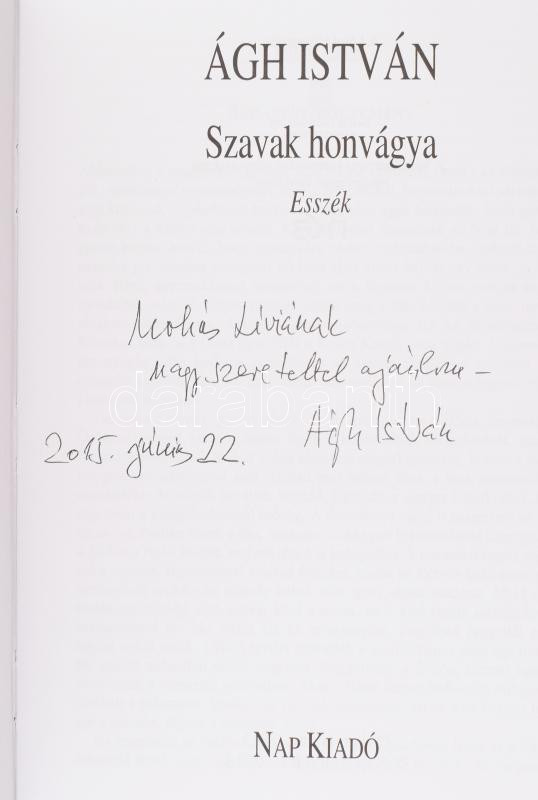 ÁGH ISTVÁN
Szavak honvágya
Esszék
Mohás Líviának
nagy szeretettel ajánlom –
Ágh István
2015. június 22.
darabanth
NAP KIADÓ